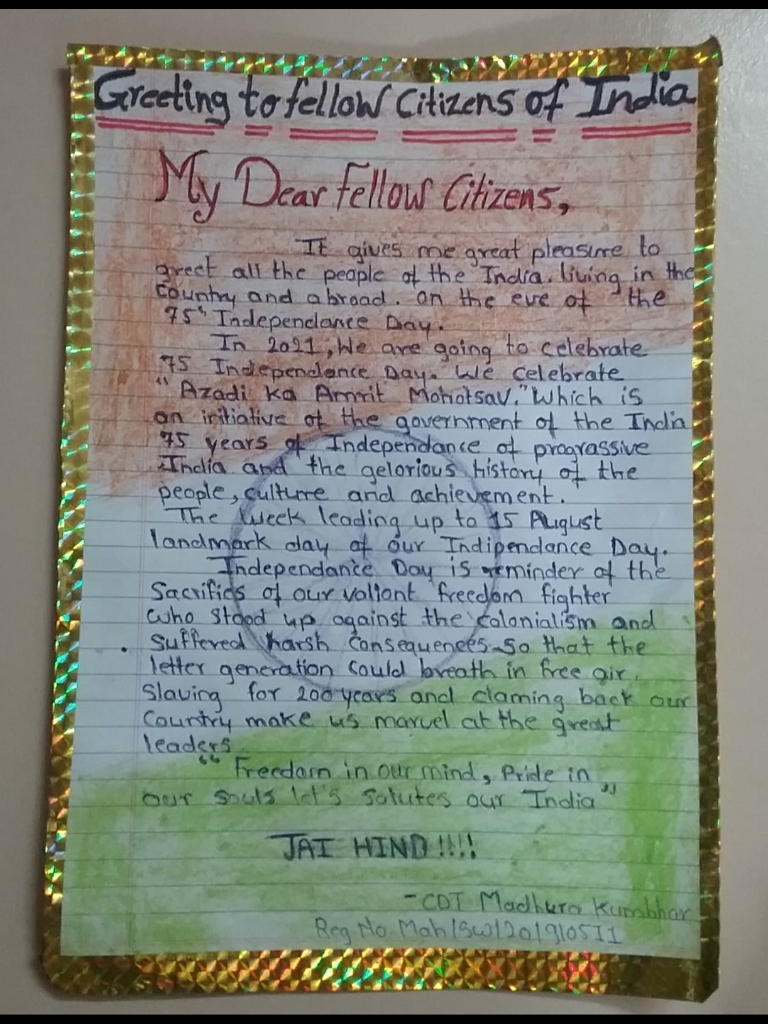 Greeting to fellow Citizens of India
My Dear Fellow Citizens,
It gives me great pleasure to
greet all the people of the India. living in the
country and abroad. on the eve of the
75th Independance Day.
In 2021, We are going to celebrate
75 Independance Day. We celebrate
"Azadi ka Amrit Mohotsav." Which is
an initiative of the government of the India
75 years of Independance of prograssive
India and the gelorious history of the
people, culture and achievement.
The week leading up to 15 August
landmark day of our Indipendance Day.
Independance Day is reminder of the
Sacrifies of our valiant freedom fighter
who stood up against the colonialism and
suffered harsh consequences so that the
letter generation could breath in free air.
Slaving for 200 years and claming back our
Country make us marvel at the great
leaders.
"Freedom in our mind, Pride in
our souls let's salutes our India"
JAI HIND !!!!
- CDT Madhura Kumbhar
Reg No Mah/SW/20/910511